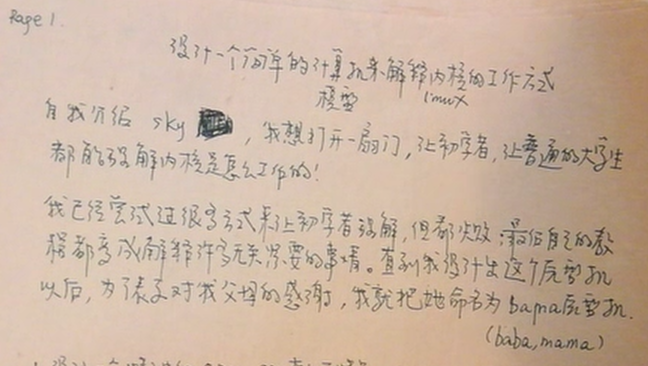 Page 1.
设计一个简单的计算机来解释内核的工作方式
模型 linux
自我介绍 sky , 我想打开一扇门, 让初学者, 让普通的大学生
都能理解内核是怎么工作的!
我已经尝试过很多方式来让初学者理解, 但都失败, 最后自己的教
程都变成解释许多无关紧要的事情。直到我设计出这个原型机
以后, 为了表示对我父母的感谢, 我就把她命名为bama原型机.
(baba, mama)